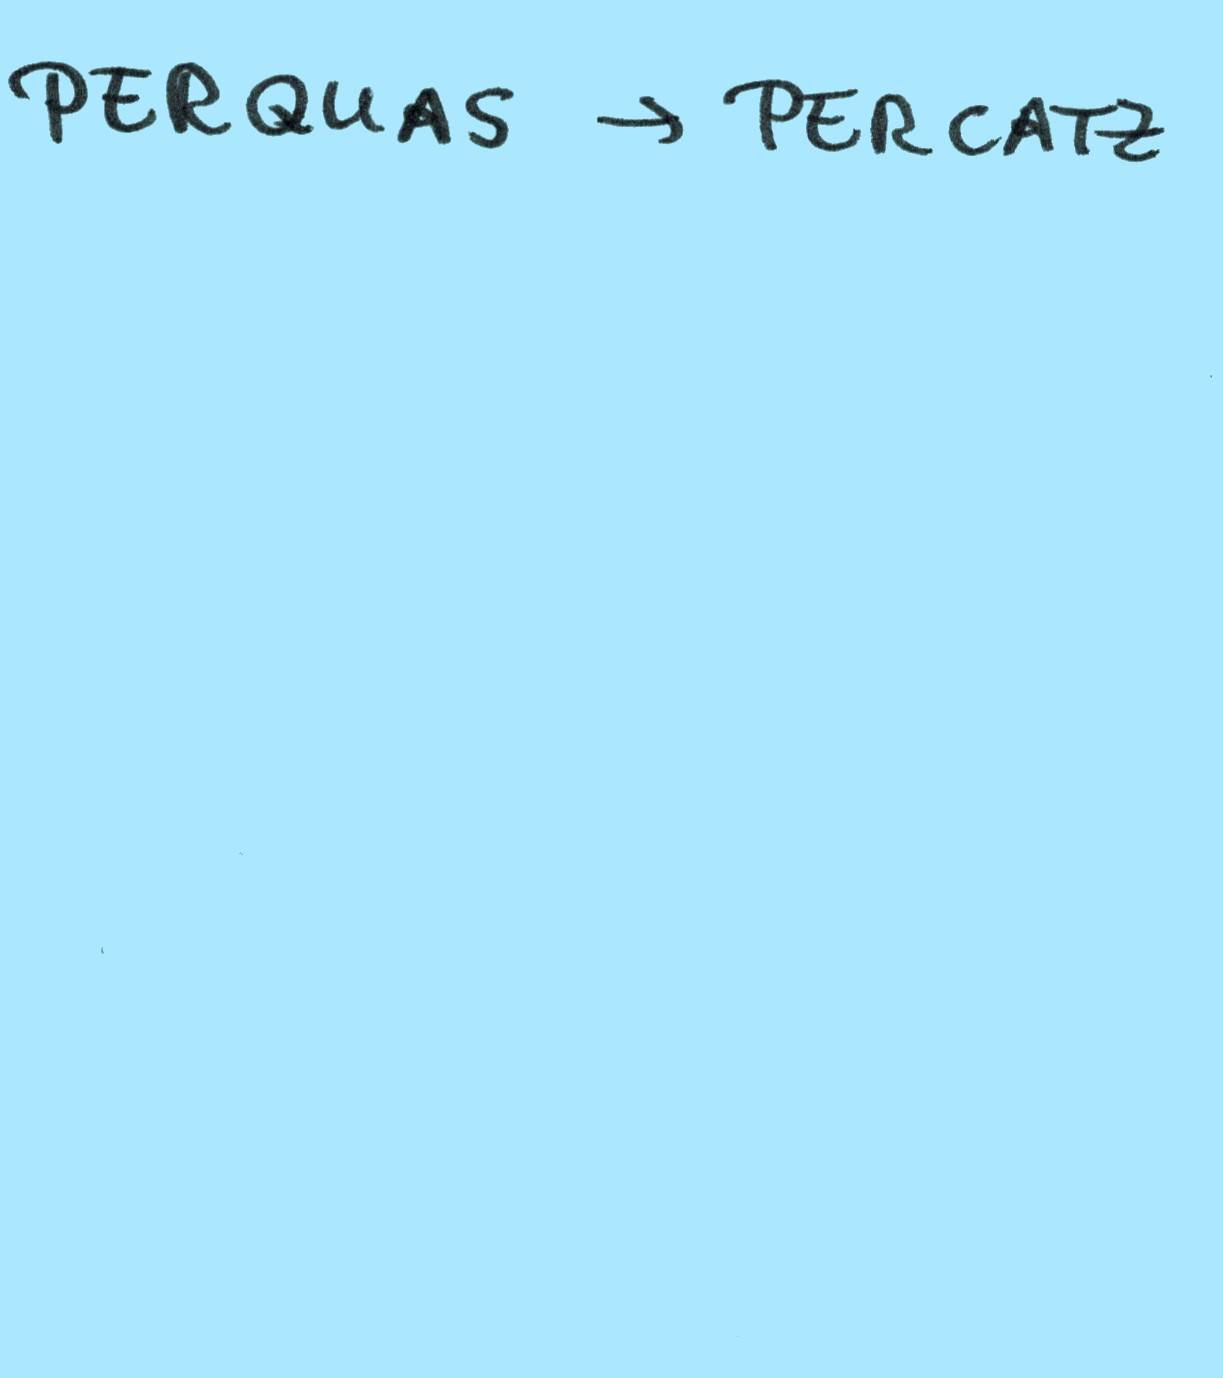 PERQUAS → PERCATZ